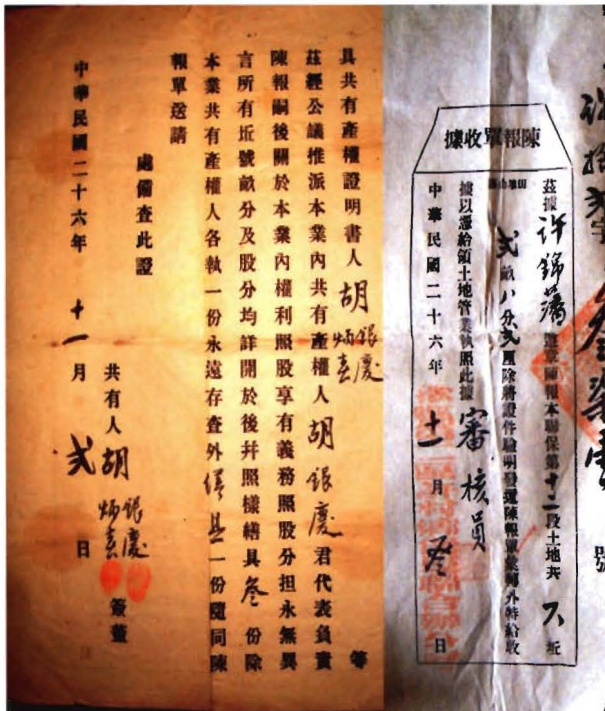 陳報單收據
茲據許錦藩遵章陳報本聯保第十二段土地共六坵
弍畝八分弍厘除將證件驗明發還陳報單彙轉外特給收
據以憑給領土地管業執照此據
審核員
中華民國二十六年十一月叄日
號
具共有產權證明書人胡銀慶炳熹等
茲經公議推派本業內共有產權人胡銀慶君代表負責
陳報嗣後關於本業內權利照股享有義務照股分担永無異
言所有坵號畝分及股分均詳開於後幷照樣繕具叄份除
本業共有產權人各執一份永遠存查外繕具一份隨同陳
報單送請
處備查此證
共有人胡銀慶炳熹簽蓋
中華民國二十六年十一月弍日